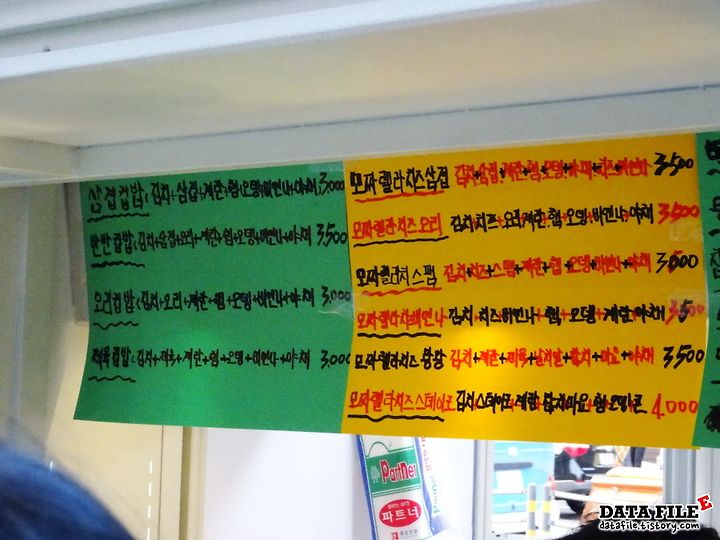 삼겹컵밥 김치+삼겹+계란+햄+오뎅+비엔나+야채 3,000
반반컵밥 김치+삼겹+오리+계란+햄+오뎅+비엔나+야채 3,500
오리컵밥 김치+오리+계란+햄+오뎅+비엔나+야채 3,000
제육컵밥 김치+제육+계란+햄+오뎅+비엔나+야채 3,000
모짜렐라치즈삼겹 김치+삼겹+계란+햄+오뎅+야채+치즈+비엔나 3,500
모짜렐라치즈오리 김치+치즈+오리+계란+햄+오뎅+비엔나+야채 3,500
모짜렐라치즈스팸 김치+치즈+스팸+계란+햄+오뎅+비엔나+야채
모짜렐라치즈비엔나 김치+치즈+비엔나+햄+오뎅+계란+야채
모짜렐라치즈 김치+계란+제육+날치알+참치+마요+야채 3,500
모짜렐라치즈스테이크 김치+스테이크+계란+참치마요+햄+오뎅 4,000
Partner
파트너
DATA FILE
datafile.tistory.com